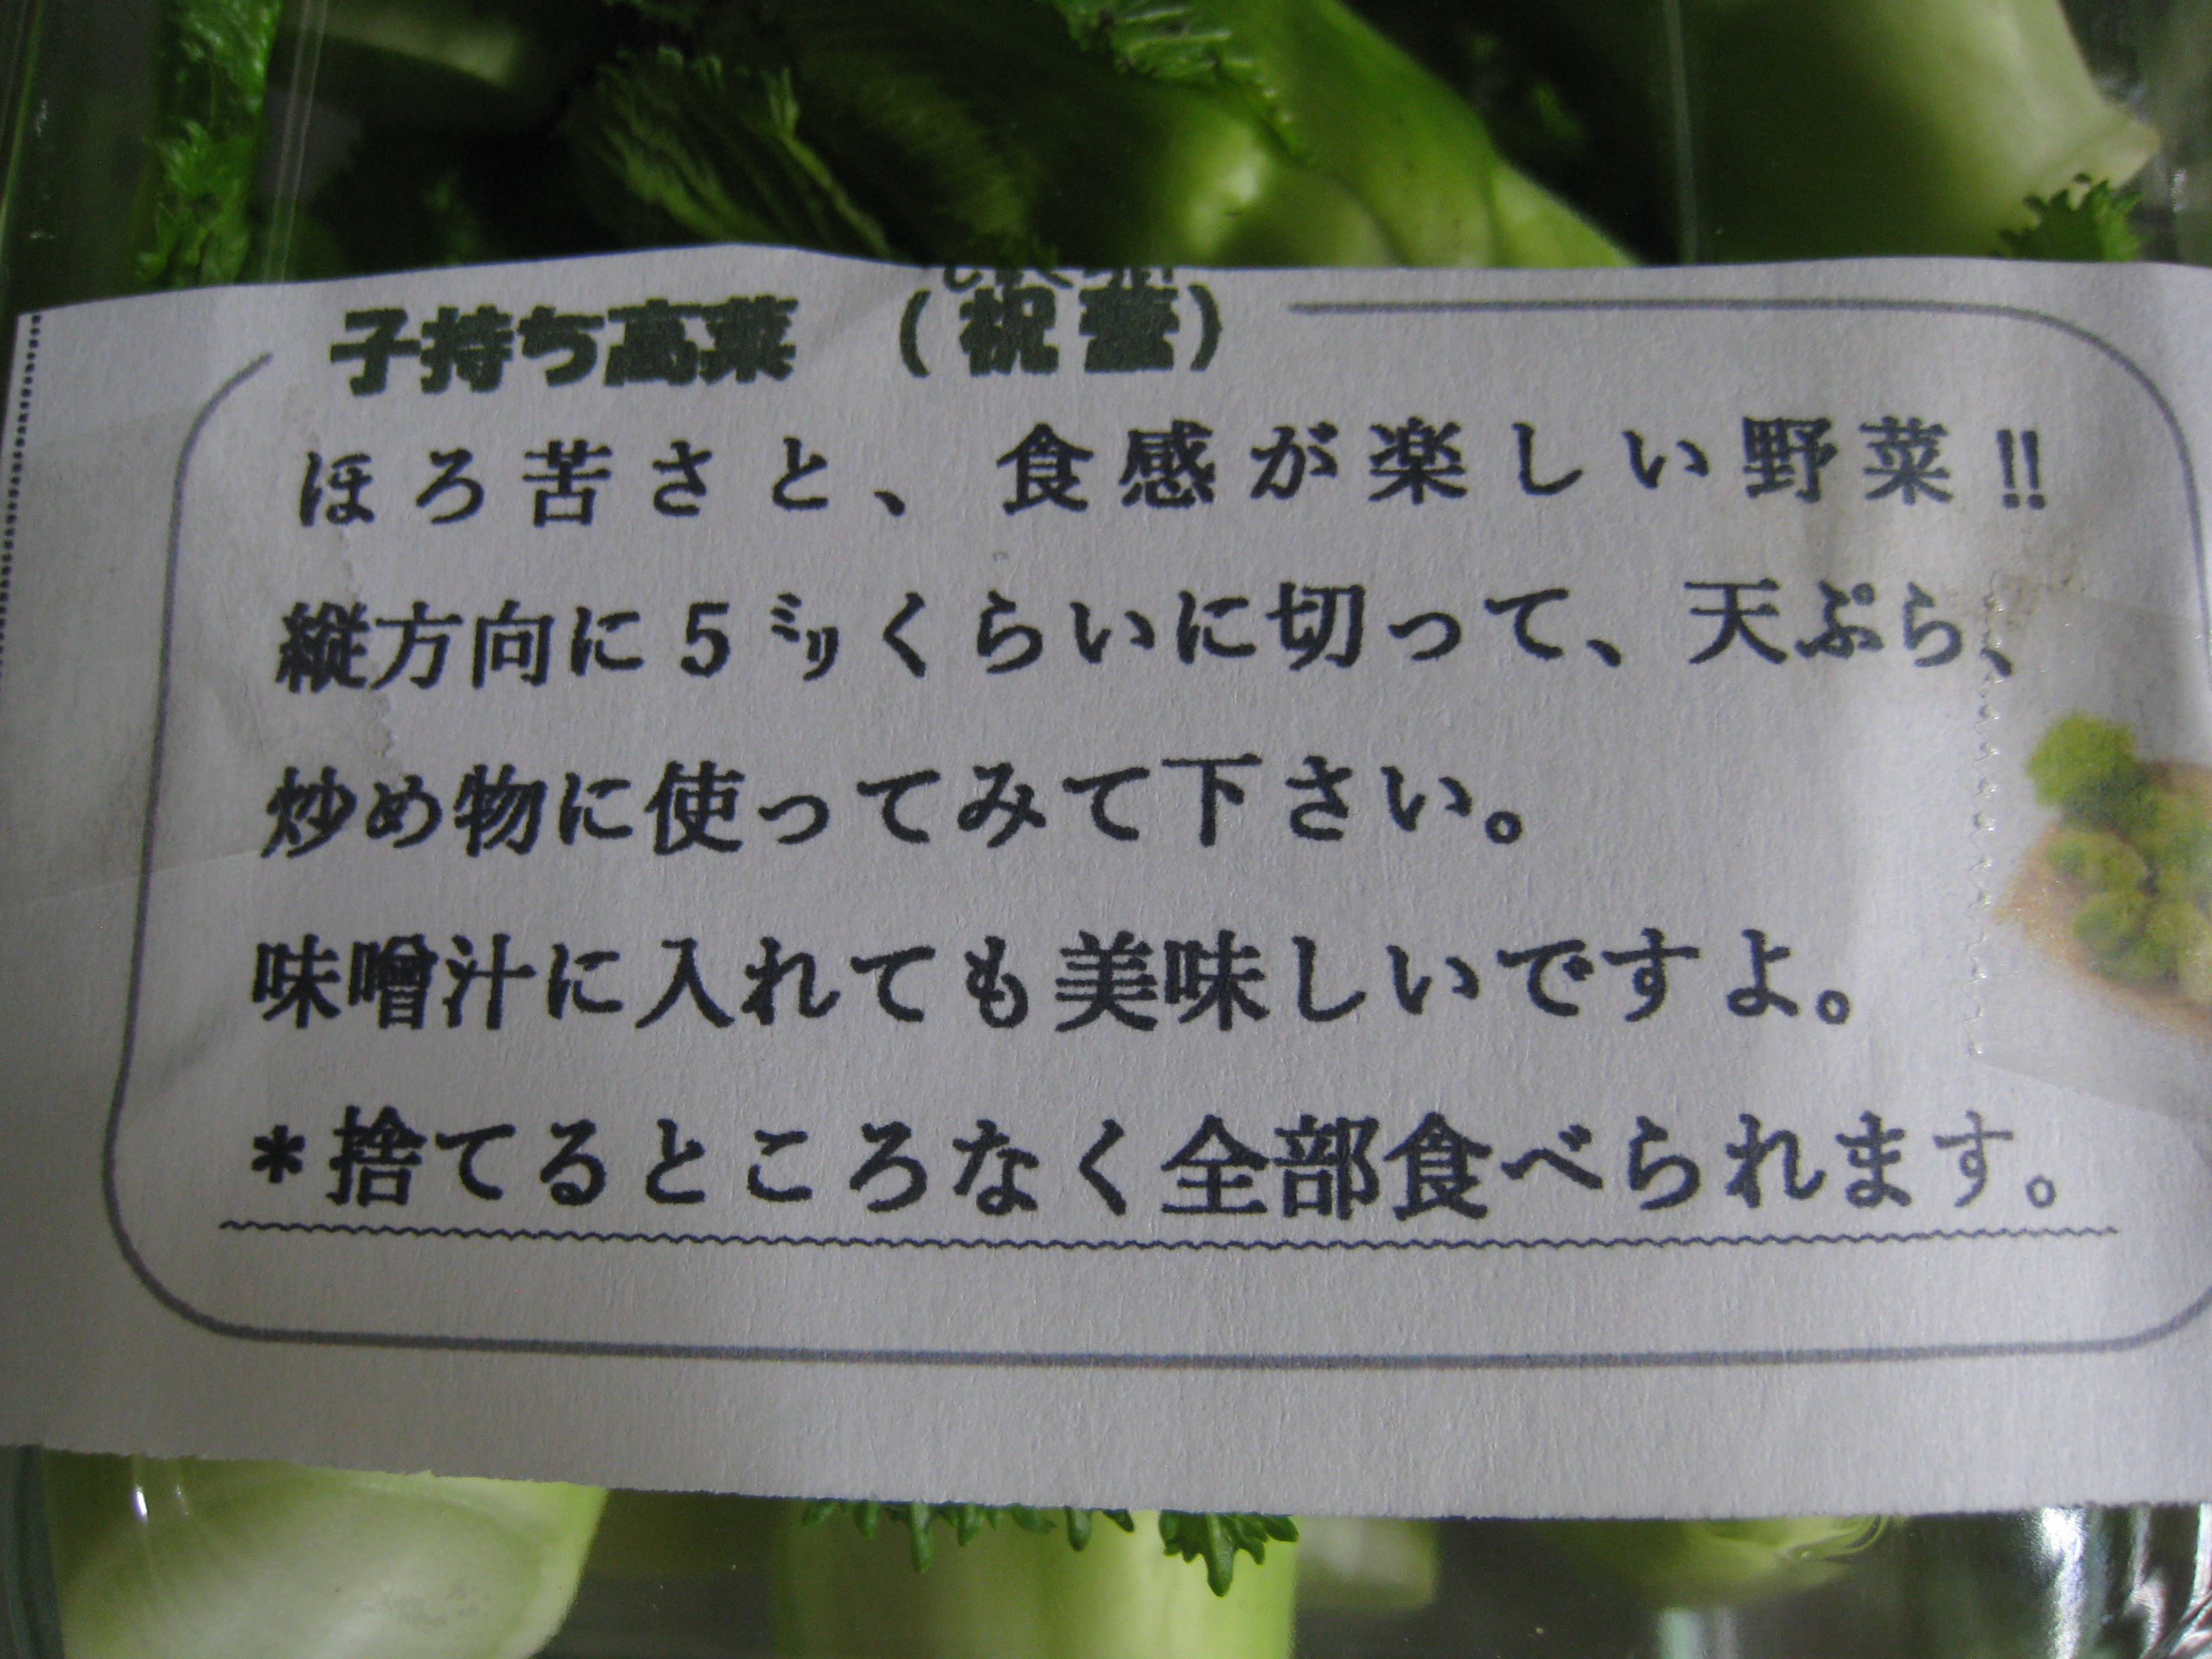 子持ち高菜 (祝蕾)
ほろ苦さと、食感が楽しい野菜!!
縦方向に5㍉くらいに切って、天ぷら、
炒め物に使ってみて下さい。
味噌汁に入れても美味しいですよ。
*捨てるところなく全部食べられます。